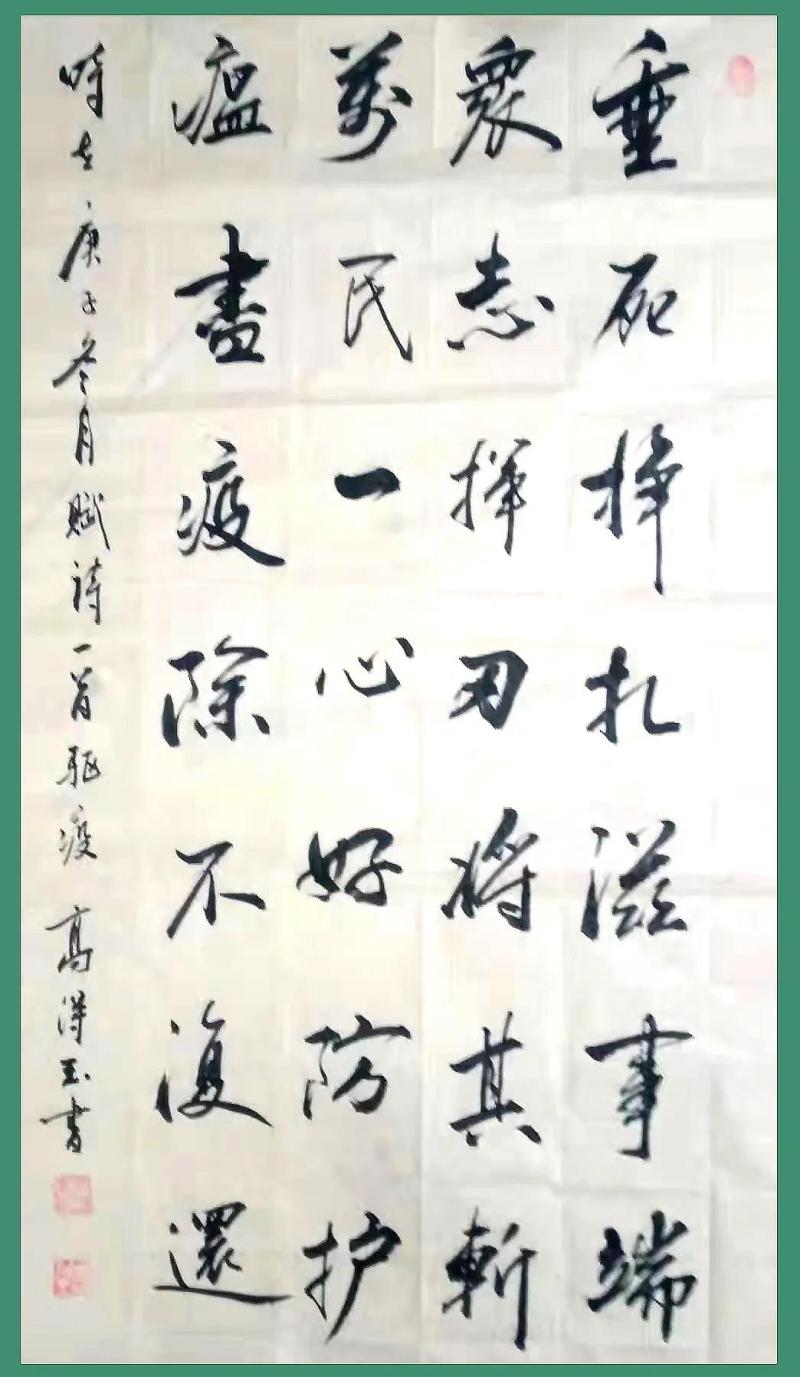 垂死掙扎滋事端
眾志揮刃將其斬
萬民一心好防护
瘟盡疫除不復還
時在庚子冬月賦詩一首驅疫 高得玉書